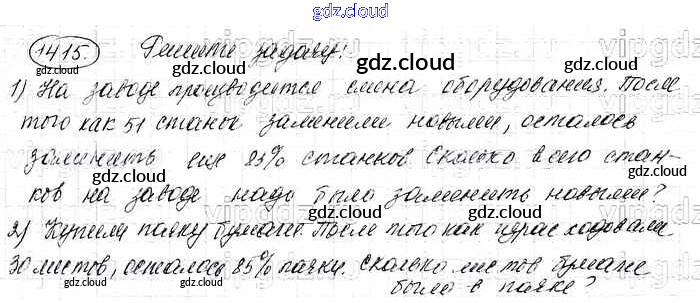 gdz.cloud
1415. Решите задачу:
1) На заводе производится смена оборудования. После
того как 51 станок заменили новыми, осталось
заменить еще 83% станков. Сколько всего стан-
ков на заводе надо было заменить новыми?
2) Купили пачку бумаги. После того как израсходовали
30 листов, осталось 85% пачки. Сколько листов бумаги
было в пачке?